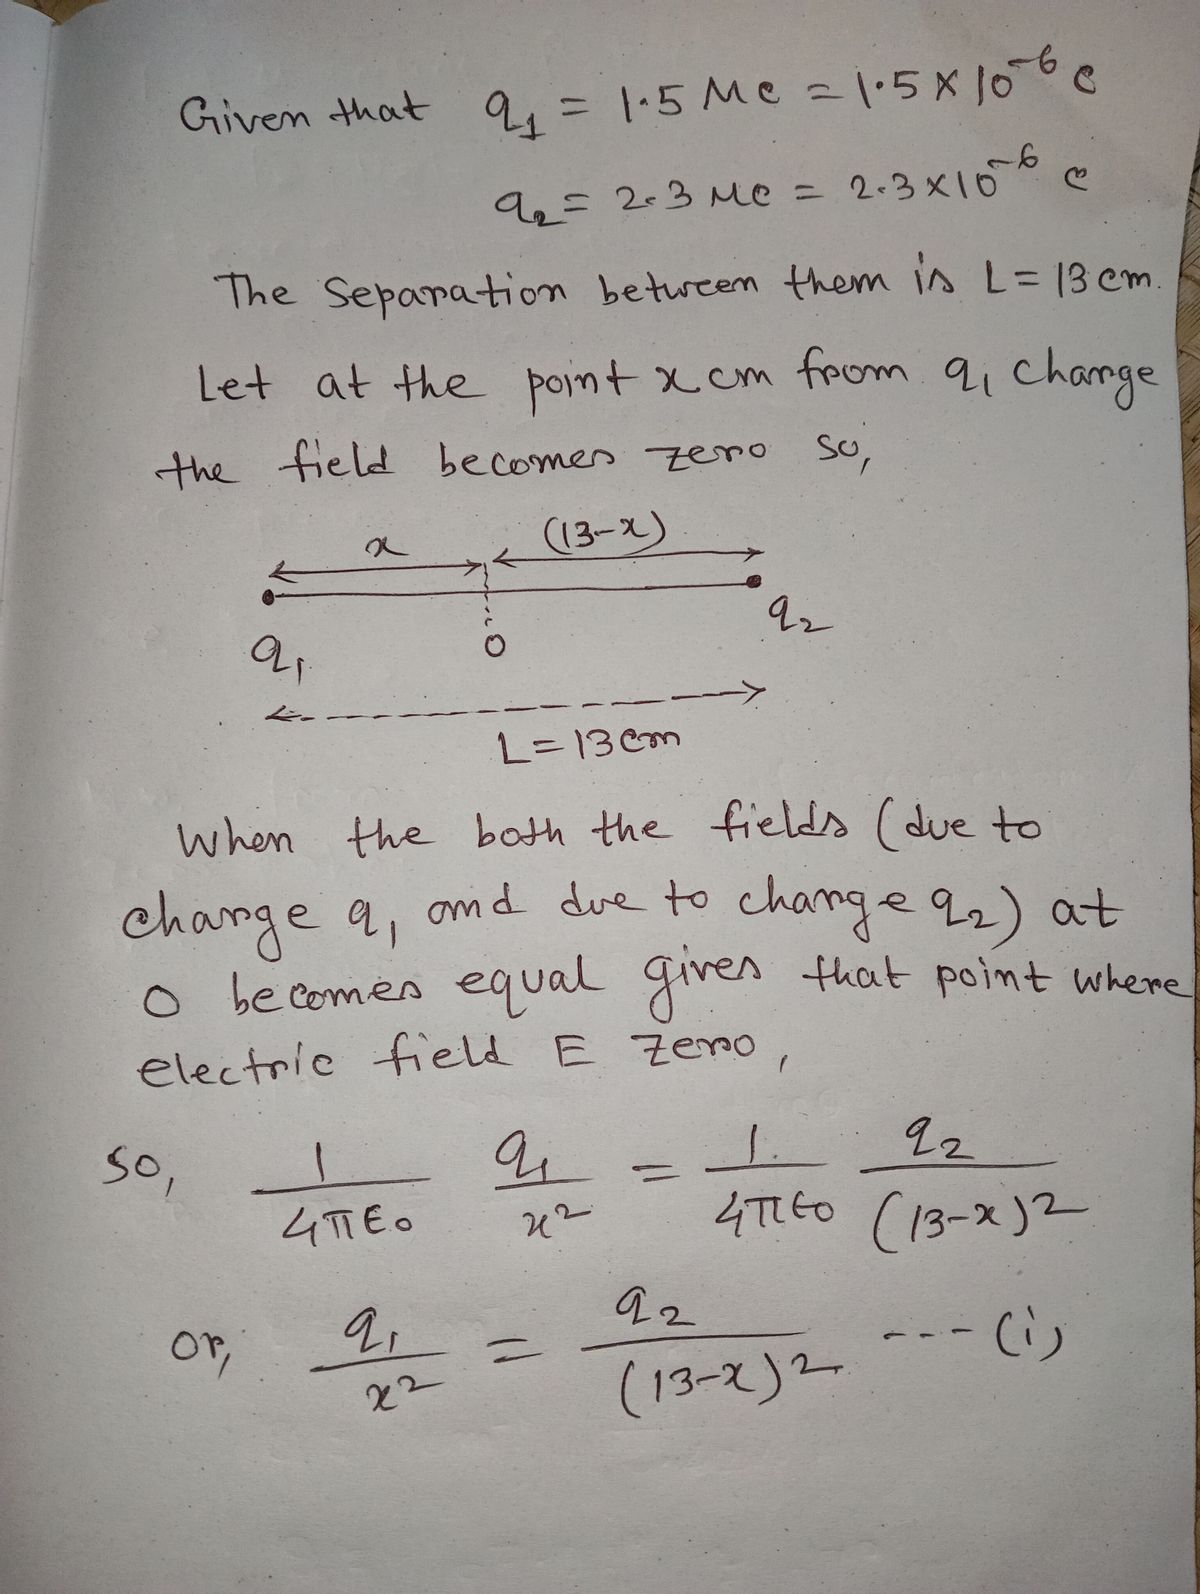 Given that q₁ = 1.5 μc = 1.5 × 10⁻⁶ c
q₂ = 2.3 μc = 2.3 × 10⁻⁶ c
The Separation between them is L = 13 cm.
Let at the point x cm from q₁ charge
the field becomes zero so,
x (13-x)
q₁ O q₂
L = 13 cm
When the both the fields (due to
charge q₁ and due to charge q₂) at
O becomes equal gives that point where
electric field E zero,
so, 1/4πε₀ q₁/x² = 1/4πε₀ q₂/(13-x)²
or, q₁/x² = q₂/(13-x)² ---(i)